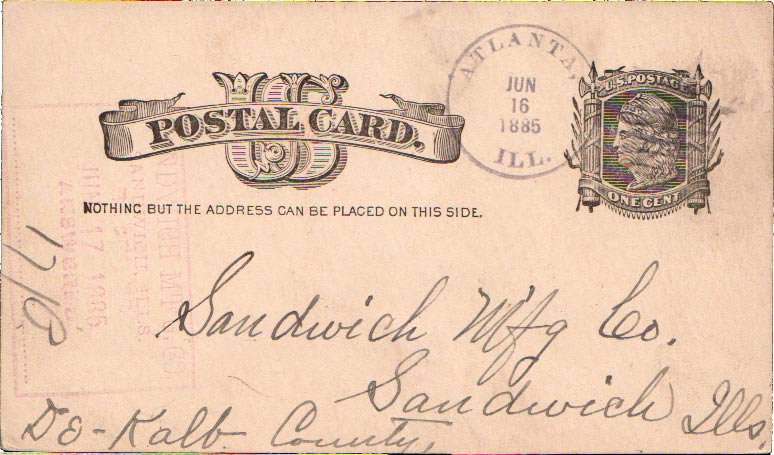 US
POSTAL CARD.
NOTHING BUT THE ADDRESS CAN BE PLACED ON THIS SIDE.
ATLANTA,
JUN
16
1885
ILL.
U.S. POSTAGE
ONE CENT
SANDWICH MFG CO
SANDWICH, ILLS.
JUN 17 1885
ANSWERED
Sandwich Mfg Co.
Sandwich Ills,
De-Kalb County,